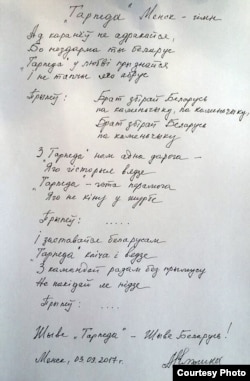 „Тарпеда" Менск – гімн
Ад каранёў не адракайся,
Бо нездарма ты беларус
"Тарпеда" у любві прызнайся
І не тапчы яго абрус
Прыпеў: Брат збірай Беларусь
па каменьчыку, па каменьчыку
Брат збірай Беларусь
па каменьчыку
З "Тарпеда" нам адна дарога –
Яго гісторыя вядзе
"Тарпеда" – гэта перамога
Яго не кіну у журбе
Прыпеў: .....
І заставайся беларусам
"Тарпеда" кліча і вядзе
З камандай разам без прымусу
Не пакідай яе нідзе
Прыпеў: ....
Жыве „Тарпеда" – Жыве Беларусь!
Менск, 03.09.2017г.
Courtesy Photo